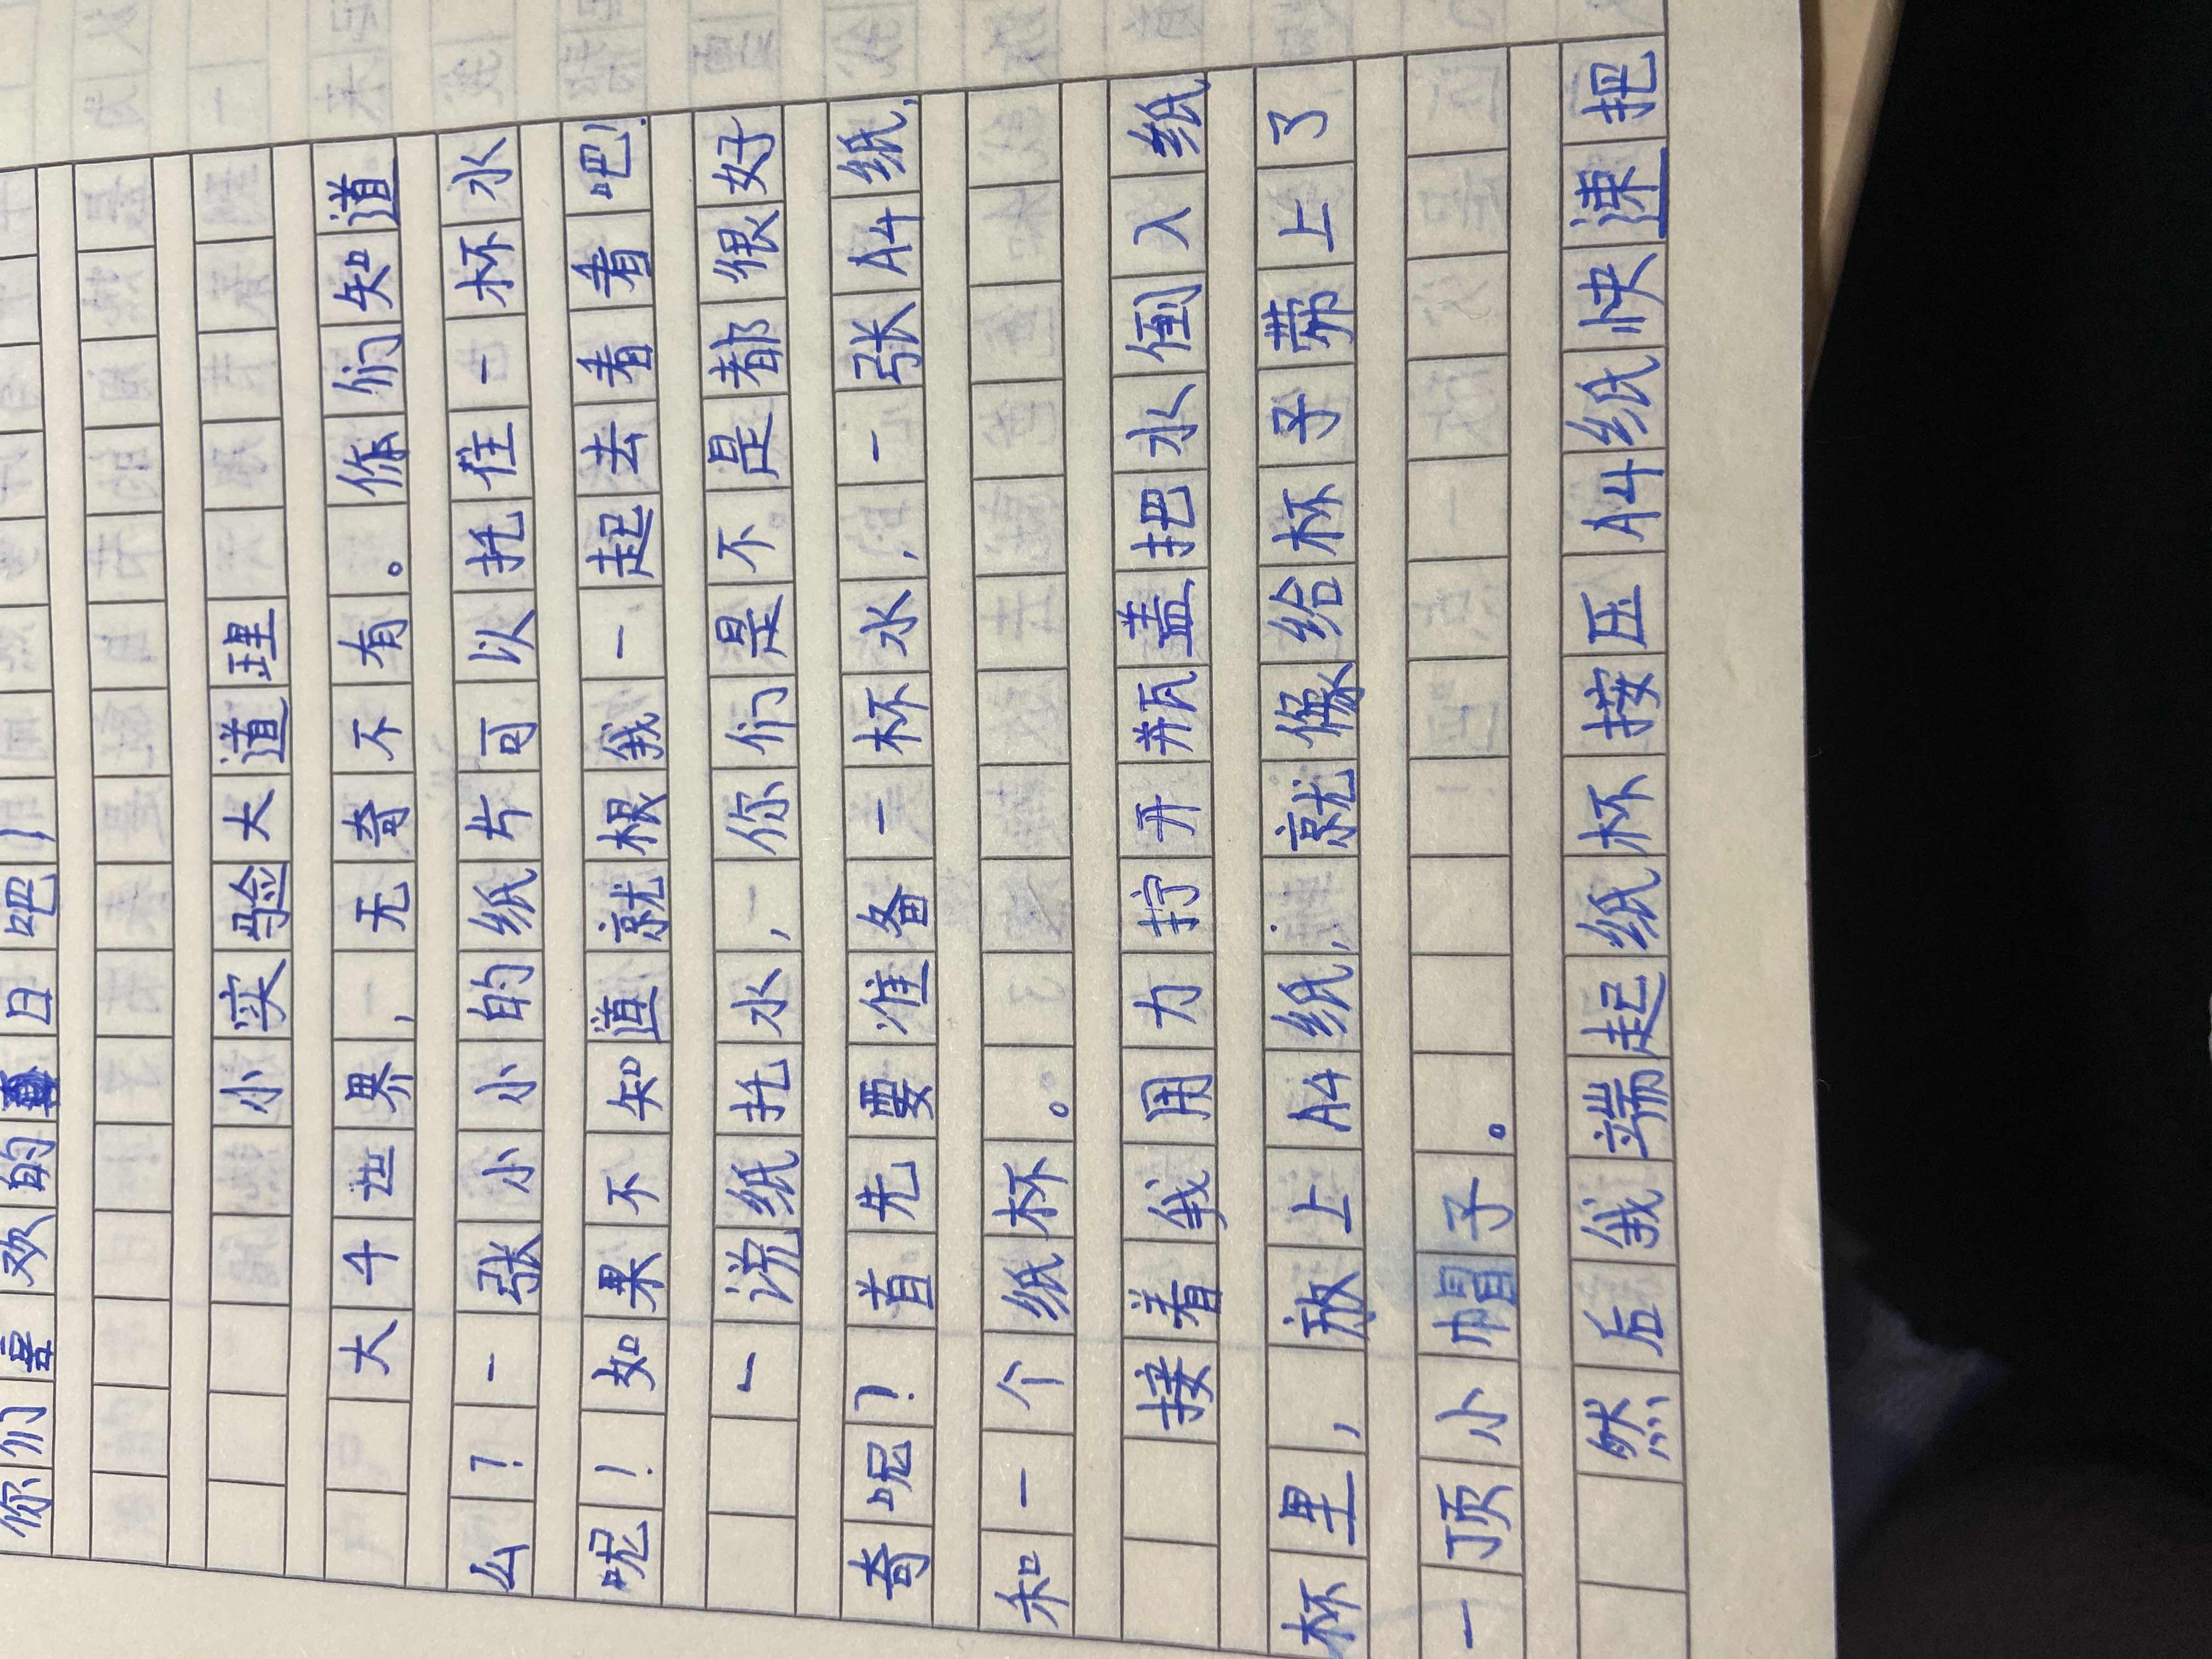 你们喜欢的日吧！
小实验大道理
大千世界，无奇不有。你们知道
么？一张小小的纸片可以托住一杯水
呢！如果不知道就根我一起去看看吧！
一说纸托水，你们是不是都很好
奇呢？首先要准备一杯水，一张A4纸，
和一个纸杯。
接着我用力拧开瓶盖把水倒入纸
杯里，放上A4纸，就像给杯子带上了
一顶小帽子。
然后我端起纸杯按压A4纸快速把